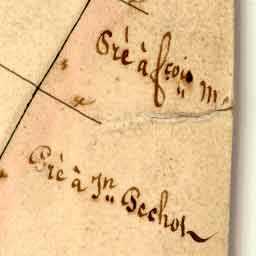 Pré à fçois m
Pré à Jn Bechot